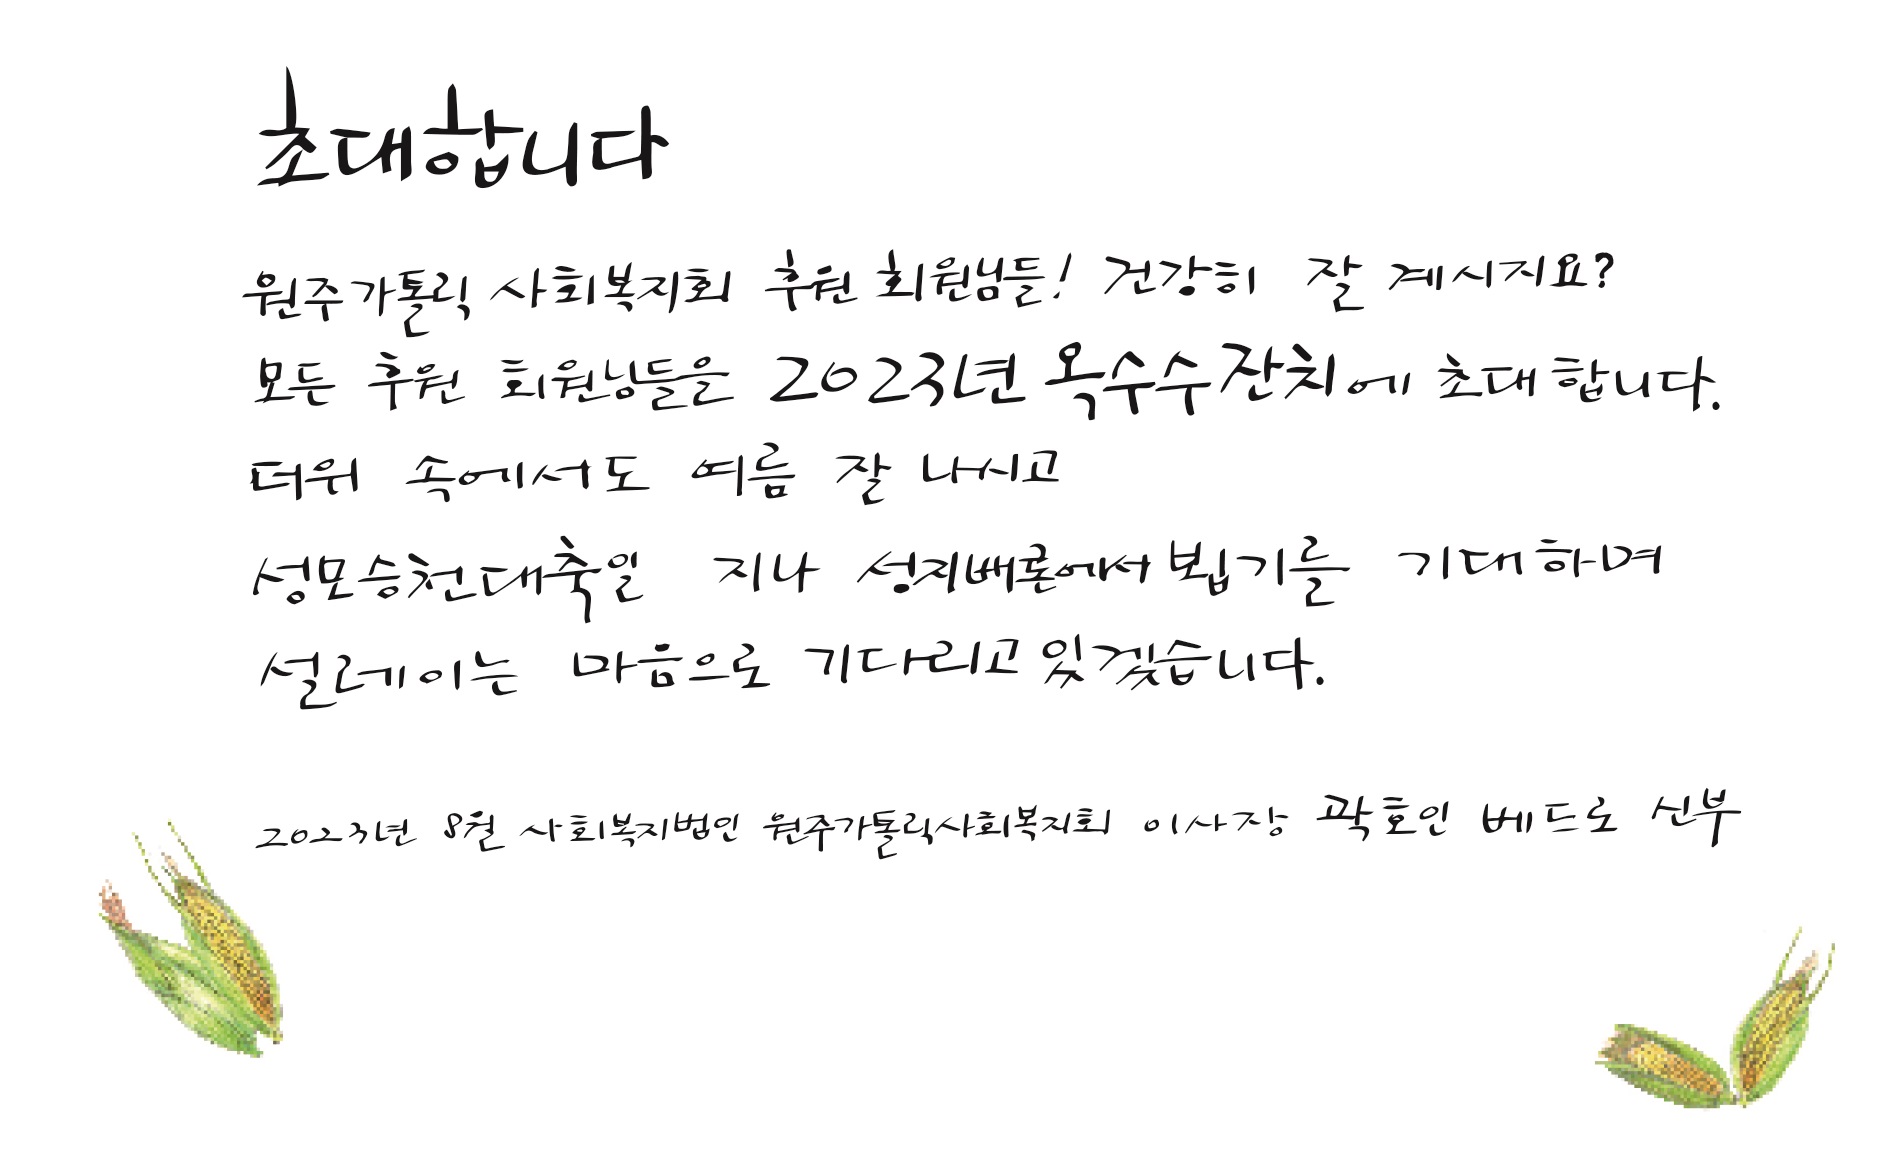 초대합니다
원주가톨릭 사회복지회 후원 회원님들! 건강히 잘 계시지요?
모든 후원 회원님들을 2023년 옥수수잔치에 초대합니다.
더위 속에서도 여름 잘 나시고
성모승천대축일 지나 성지배론에서 뵙기를 기대하며
설레이는 마음으로 기다리고 있겠습니다.
2023년 8월 사회복지법인 원주가톨릭사회복지회 이사장 곽호인 베드로 신부